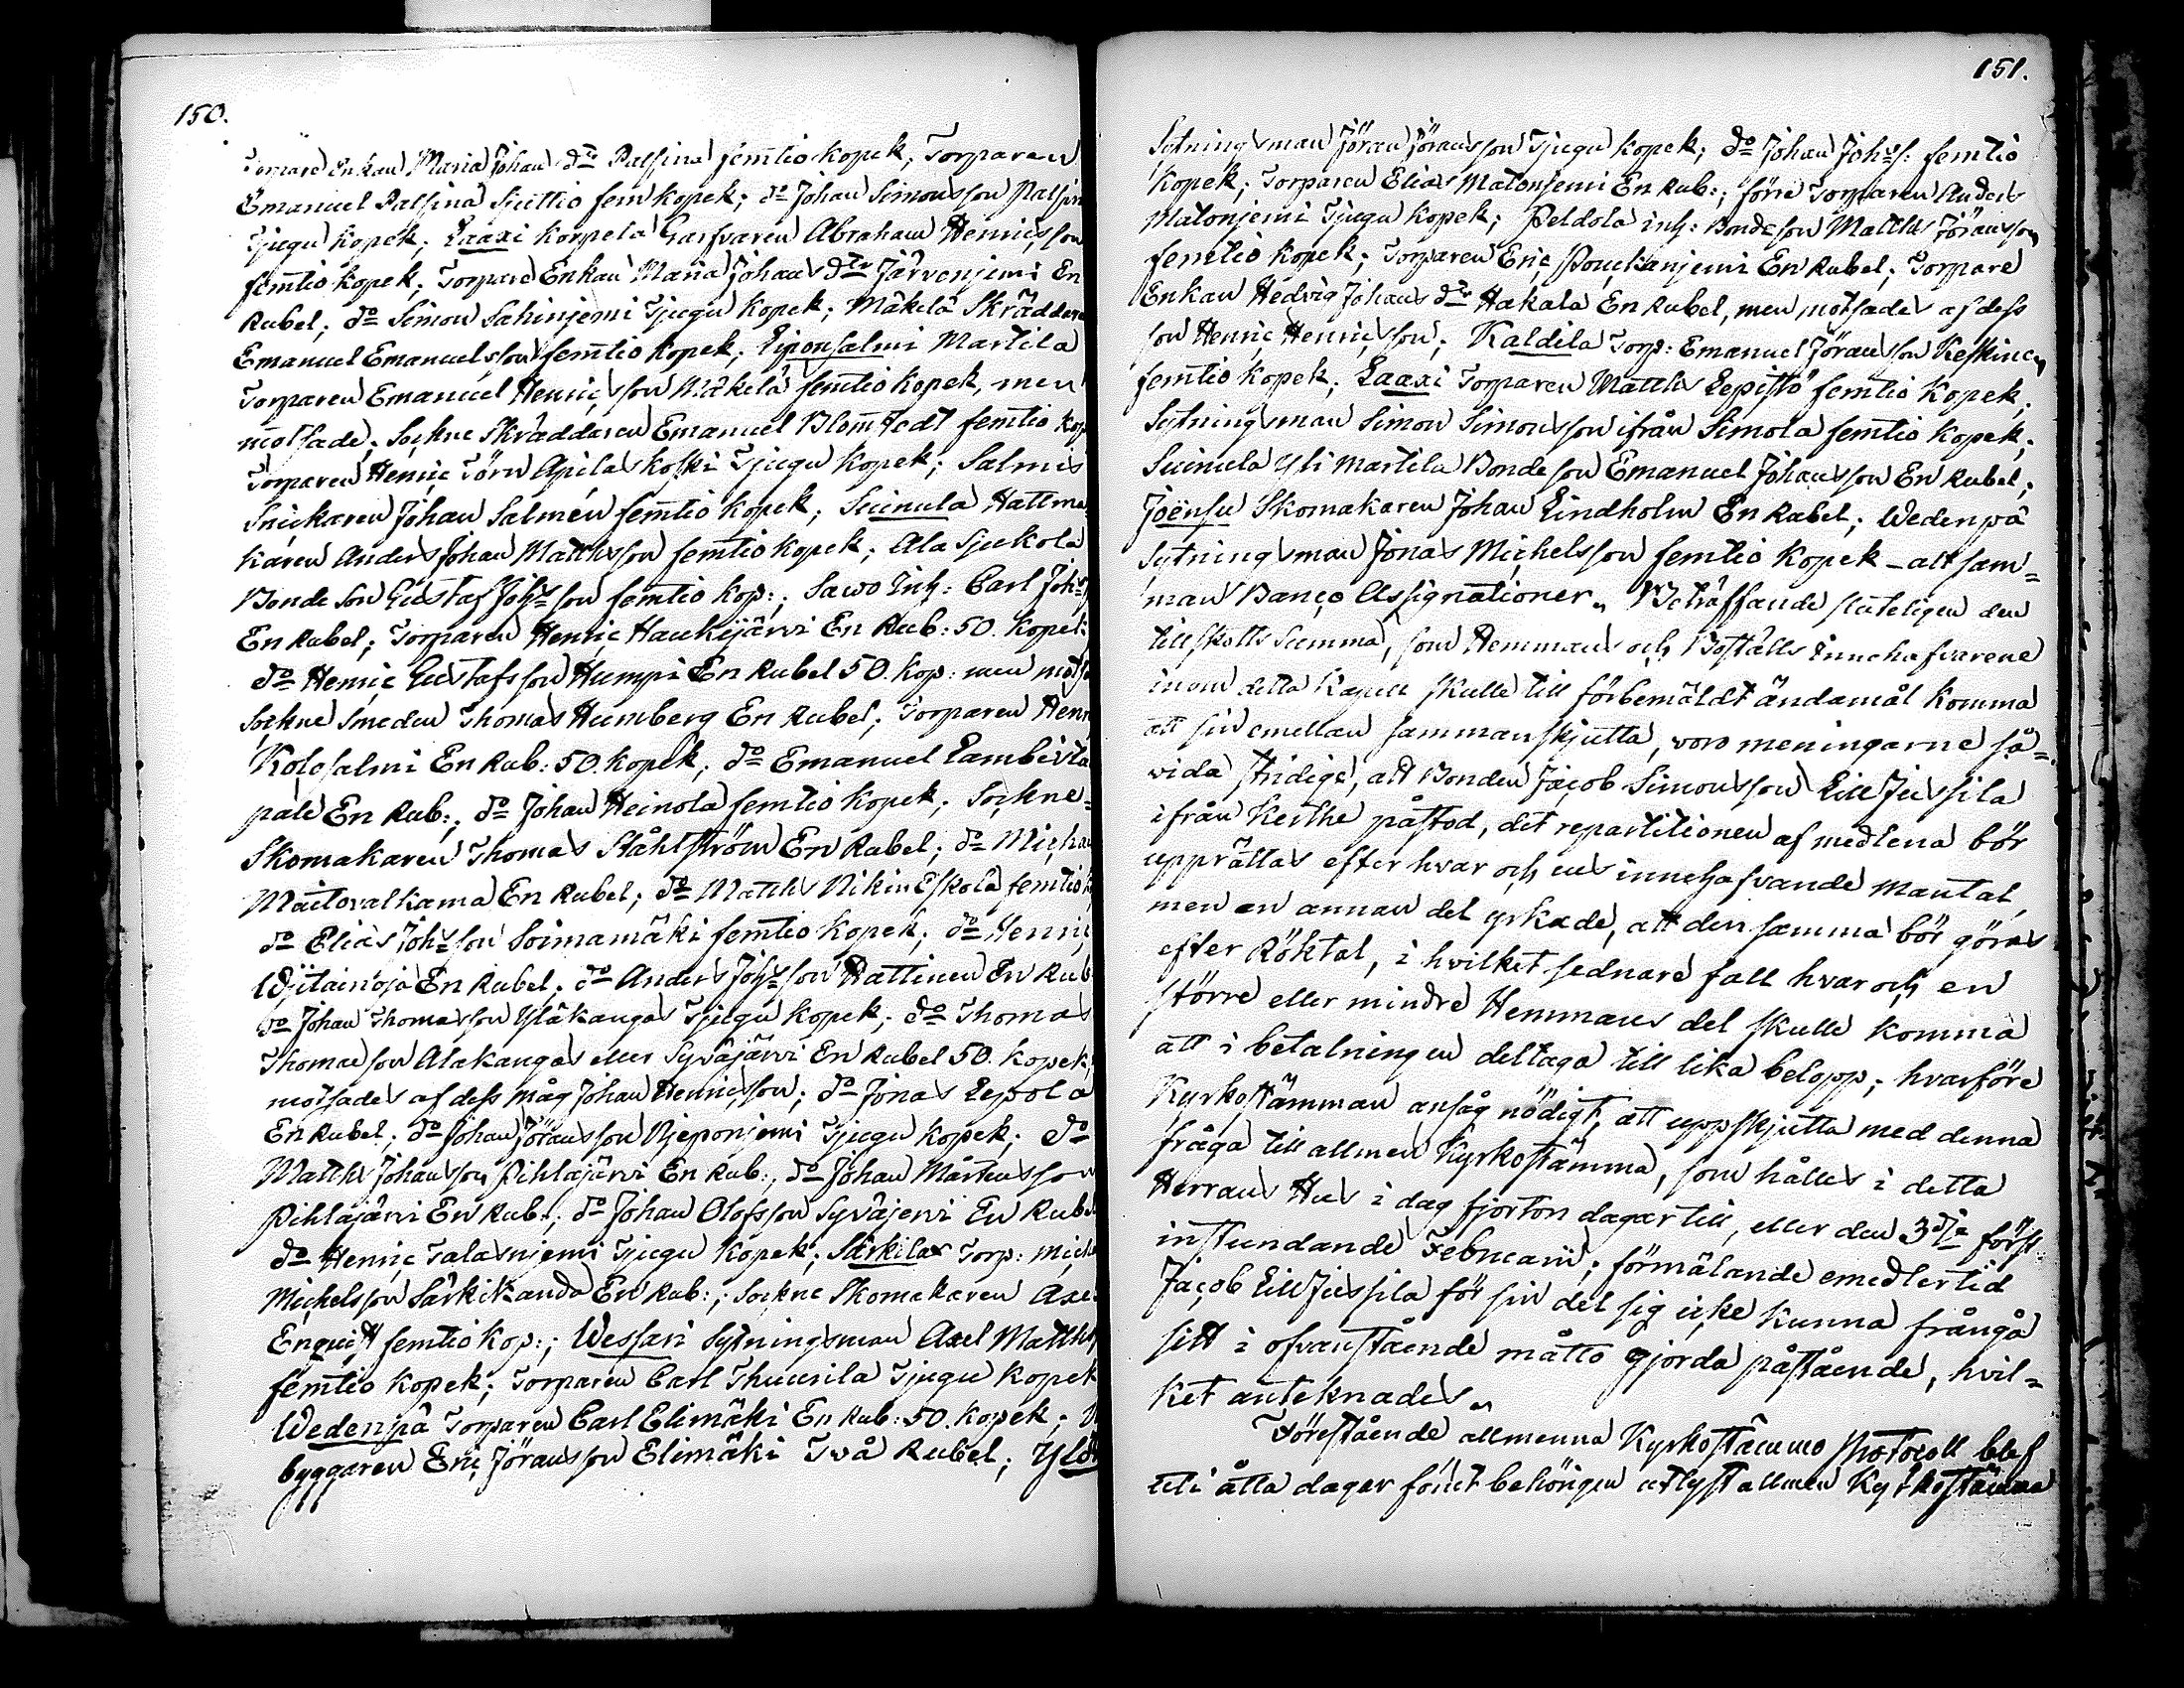 150.
Torpare Enkan Maria Johans dr Palsina femtio kopek; Torparen
Emanuel Palsina Siuttio fem kopek; do Johan Simonsson Palsin
Tjugu kopek; Laaxi Korpela Garfvaren Abraham Henricsson
femtio kopek; Torpare Enkan Maria Johans dtr Järvenjemi En
Rubel; do Simon Sahinjemi Tjugu kopek; Mäkelä Skräddare
Emanuel Emanuelsson femtio kopek; Liponsalmi Martila
Torparen Emanuel Henricsson Mäkelä femtio kopek, men
motsade; Sockne Skräddaren Emanuel Blomstedt femtio kop
Torparen Henric Törn Apilaskoski Tjugu kopek; Salmis
Snickaren Johan Salmén femtio kopek; Suinula Hattma
karen Anders Johan Matthsson femtio kopek; Ala Sjukola
Bonde Son Gustaf Johsson femtio kop:; Sawo Inh: Carl Johs
En Rubel; Torparen Henric Haukijärvi En Rub: 50. kopek
do Henric Gustafsson Humpi En Rubel 50. kop: men motsa
Sockne Smeden Thomas Humberg En Rubel; Torparen Henr
Kolosalmi En Rub: 50. kopek; do Emanuel Lambista
pale En Rub:; do Johan Heinola femtio kopek; Sockne=
Skomakaren Thomas Ståhlström En Rubel; do Michan
Mäitovalkama En Rubel; do Matths Nikin Eskola femtio k
do Elias Johsson Soimamäki femtio kopek; do Henric
Wijtainoja En Rubel; do Anders Johsson Rattinen En Rub
do Johan Thomasson Yläkangas Tjugu kopek; do Thomas
Thomasson Alakangas eller Syväjärvi En Rubel 50. kopek;
motsades af dess måg Johan Henricsson; do Jonas Lepola
En Rubel; do Johan Jöransson Njeponjemi Tjugu kopek; do
Matths Johansson Pihlajärvi En Rub:, do Johan Mårtensson
Pihlajärvi En Rub:; do Johan Olofsson Syväjervi En Rub
do Henric Talasnjemi Tjugu kopek; Särkilax Torp: Mich
Michelsson Särkikanda En Rub:; Sockne Skomakaren Axe
Enquist femtio kop:; Wessari Sytningsman Axel Matths
femtio kopek; Torparen Carl Thuurila Tjugu kopek
Wedenpä Torparen Carl Elimäki En Rub: 50. kopek;
byggaren Eric Jöransson Elimäki Två Rubel;
151.
Sytningsman Jöran Jöransson Tjugu kopek; do Johan Johs s: femtio
kopek; Torparen Elias Matonjemi En Rub:; förre Torparen Anders
Matonjemi Tjugu kopek; Peldola inh: Bondeson Matths Jöransson
femtio kopek; Torparen Eric Pouckanjemi En Rubel; Torpare
Enkan Hedvig Johans dtr Hakala En Rubel, men motsades af dess
son Henric Henricsson; Kaldila Torp: Emanuel Jöransson Keskinen
femtio kopek; Laaxi Torparen Matths Lepistö femtio kopek;
Sytningsman Simon Simonsson ifrån Simola femtio kopek;
Suinula Yli Martila Bondeson Emanuel Johansson En Rubel;
Joënsu Skomakaren Johan Lindholm En Rubel; Wedenpä
Sytningsman Jonas Michelsson femtio kopek – alt sam=
man Banco Assignationer. Beträffande sluteligen den
tillskotts Summa, som Hemmans och Boställs Innehafvarene
inom detta Kapell skulle till förbemäldt ändamål komma
att sin emellan sammanskjutta, voro meningarne så=
vida stridiga, att Bonden Jacob Simonsson Lill Jussila
ifrån Keithe påstod, det repartitionen af medlena bör
upprättas efter hvar och ens innehafvande mantal,
men en annan del yrkade, att den samma bör göras
efter Röktal, i hvilket sednare fall hvar och en
större eller mindre Hemmans del skulle komma
att i betalningen deltaga till lika belopp; hvarföre
Kyrkostämman ansåg nödigt, att uppskjutta med denna
fråga till allmen Kyrkostämma, som hålles i detta
Herrans Hus i dag fjorton dagar till, eller den 3dje först
instundande Februarii; förmälande emedlertid
Jacob Lill Jussila för sin del sig icke kunna frångå
sitt i ofvanstående måtto gjorda påstående, hvil=
ket anteknades.
Förestående allmenna Kyrkostämmo Protocoll blef
uti åtta dagar förut behörigen utlyst allmen Kyrkostämma